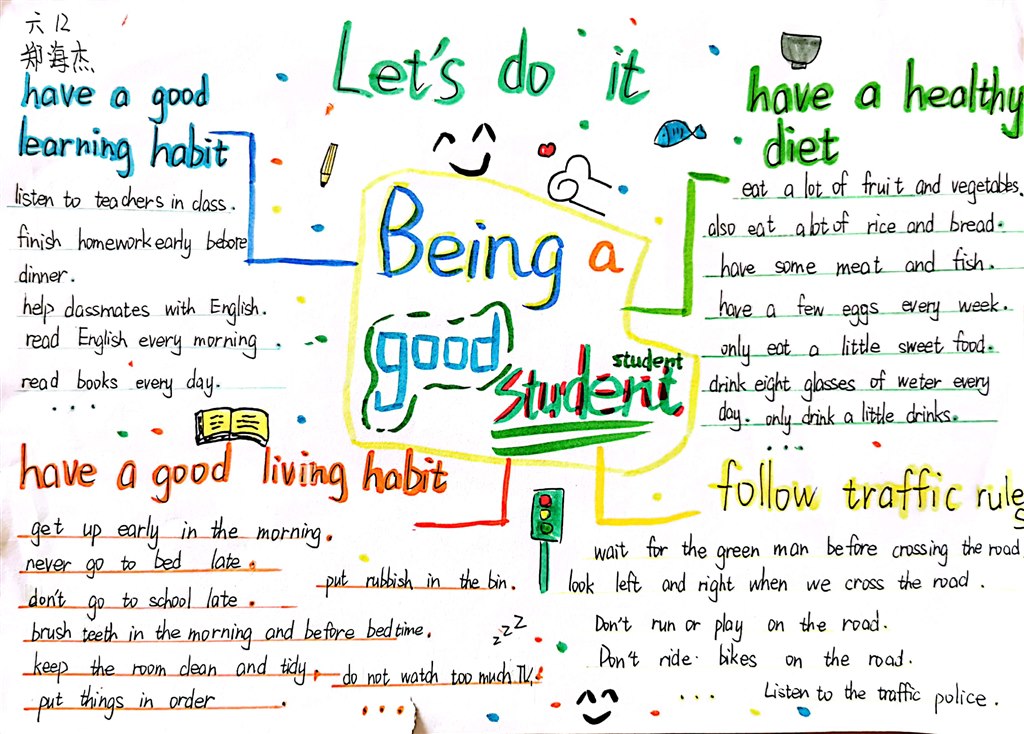 六12
郑海杰
Let's do it
have a good
learning habit
listen to teachers in class.
finish homework early before
dinner.
help classmates with English.
read English every morning.
read books every day.
...
have a healthy
diet
eat a lot of fruit and vegetables.
also eat a lot of rice and bread.
have some meat and fish.
have a few eggs every week.
only eat a little sweet food.
drink eight glasses of weter every
day. only drink a little drinks.
...
Being a
good
student
student
have a good living habit
get up early in the morning.
never go to bed late.
don't go to school late.
brush teeth in the morning and before bedtime.
keep the room clean and tidy.
put things in order.
put rubbish in the bin.
zzz
do not watch too much TV.
...
follow traffic rules
wait for the green man before crossing the road
look left and right when we cross the road.
Don't run or play on the road.
Don't ride bikes on the road.
... Listen to the traffic police.